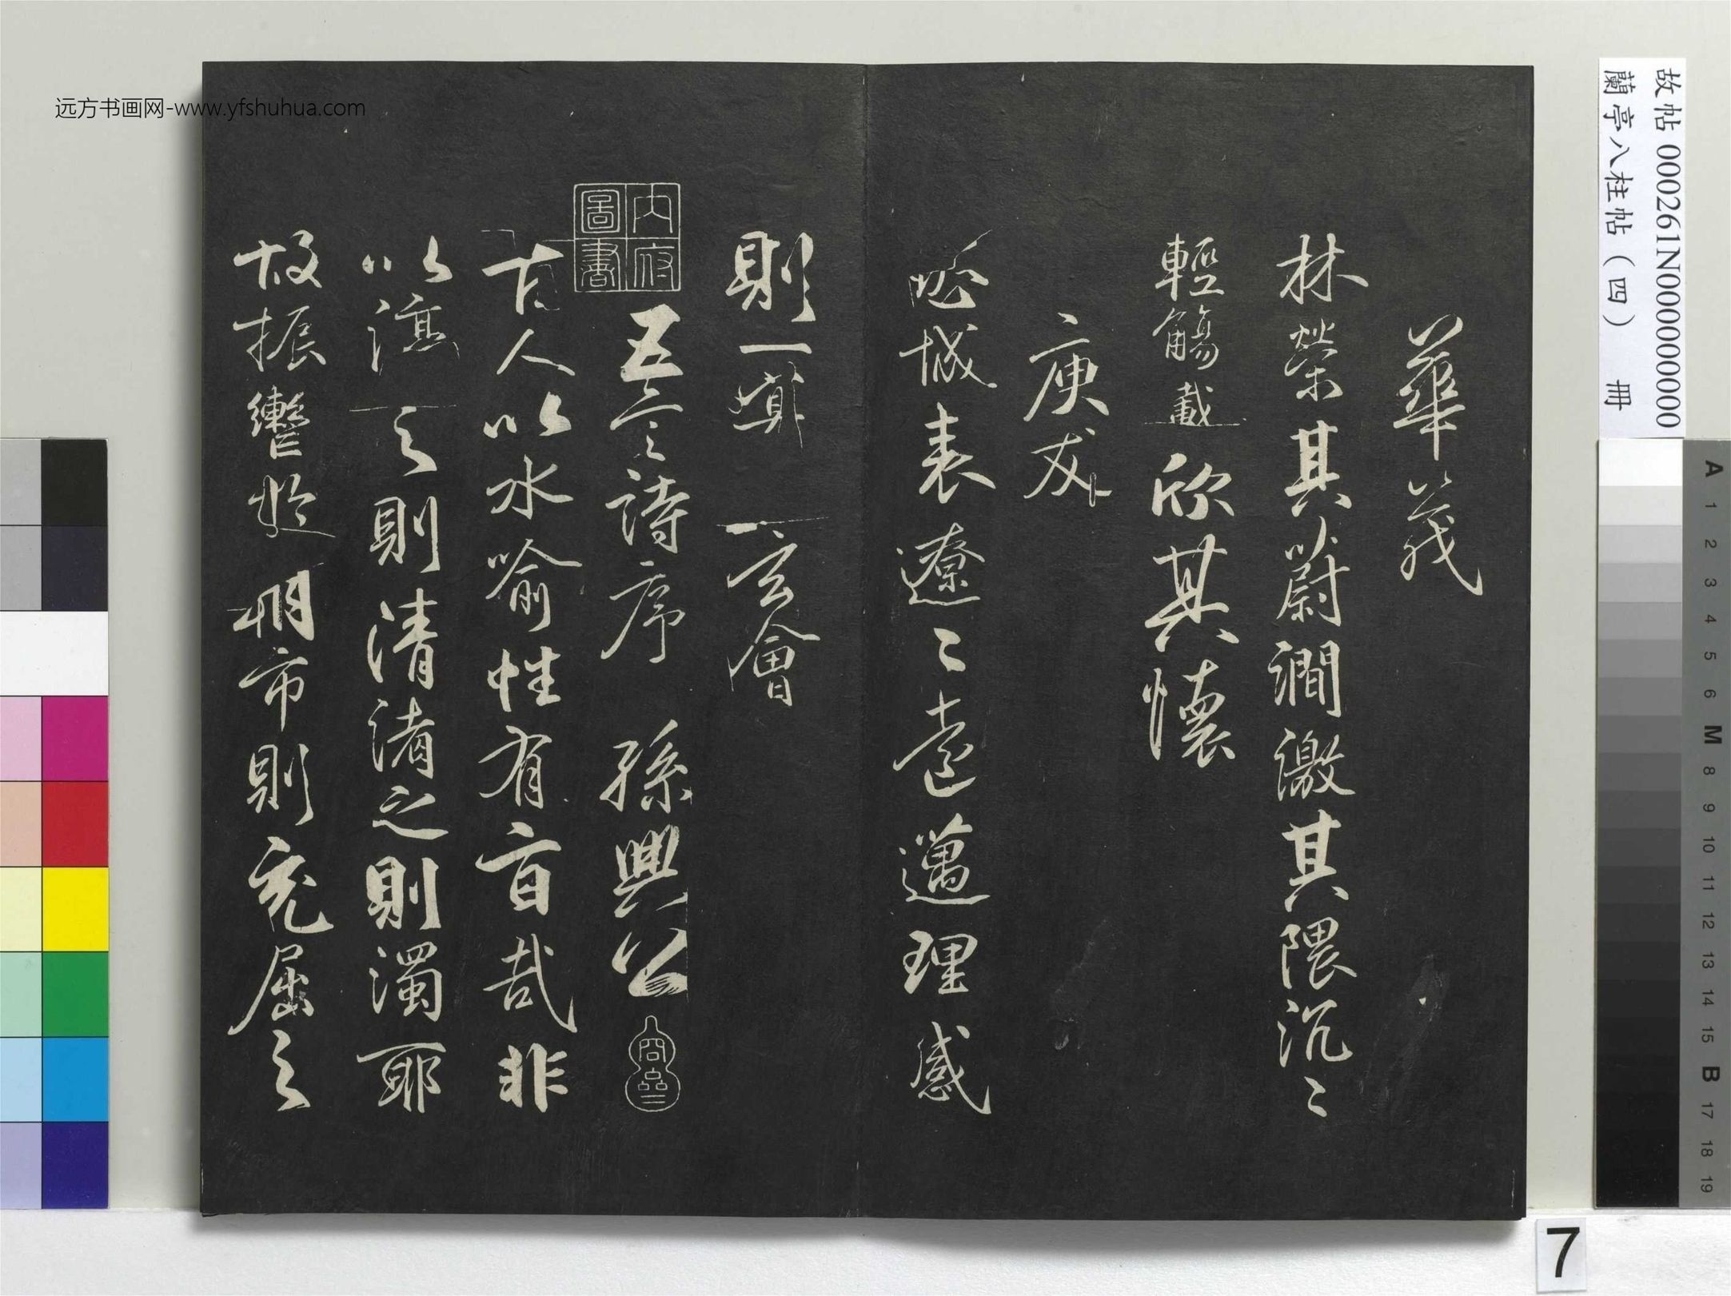 華茂
林榮其蔚澗激其隈沉〻
輕觴載欣其懷
庚友
馳域表寥〻遠邁理感
則一冥
玄會
五言詩序 孫興公
古人以水喻性有旨哉非
以停之則清淆之則濁耶
故振轡於朝市則充屈之
内府圖書
远方书画网-www.yfshuhua.com
故帖 000261N000000000
蘭亭八柱帖（四） 冊
A 1 2 3 4 5 6 M 8 9 10 11 12 13 14 15 B 17 18 19
7